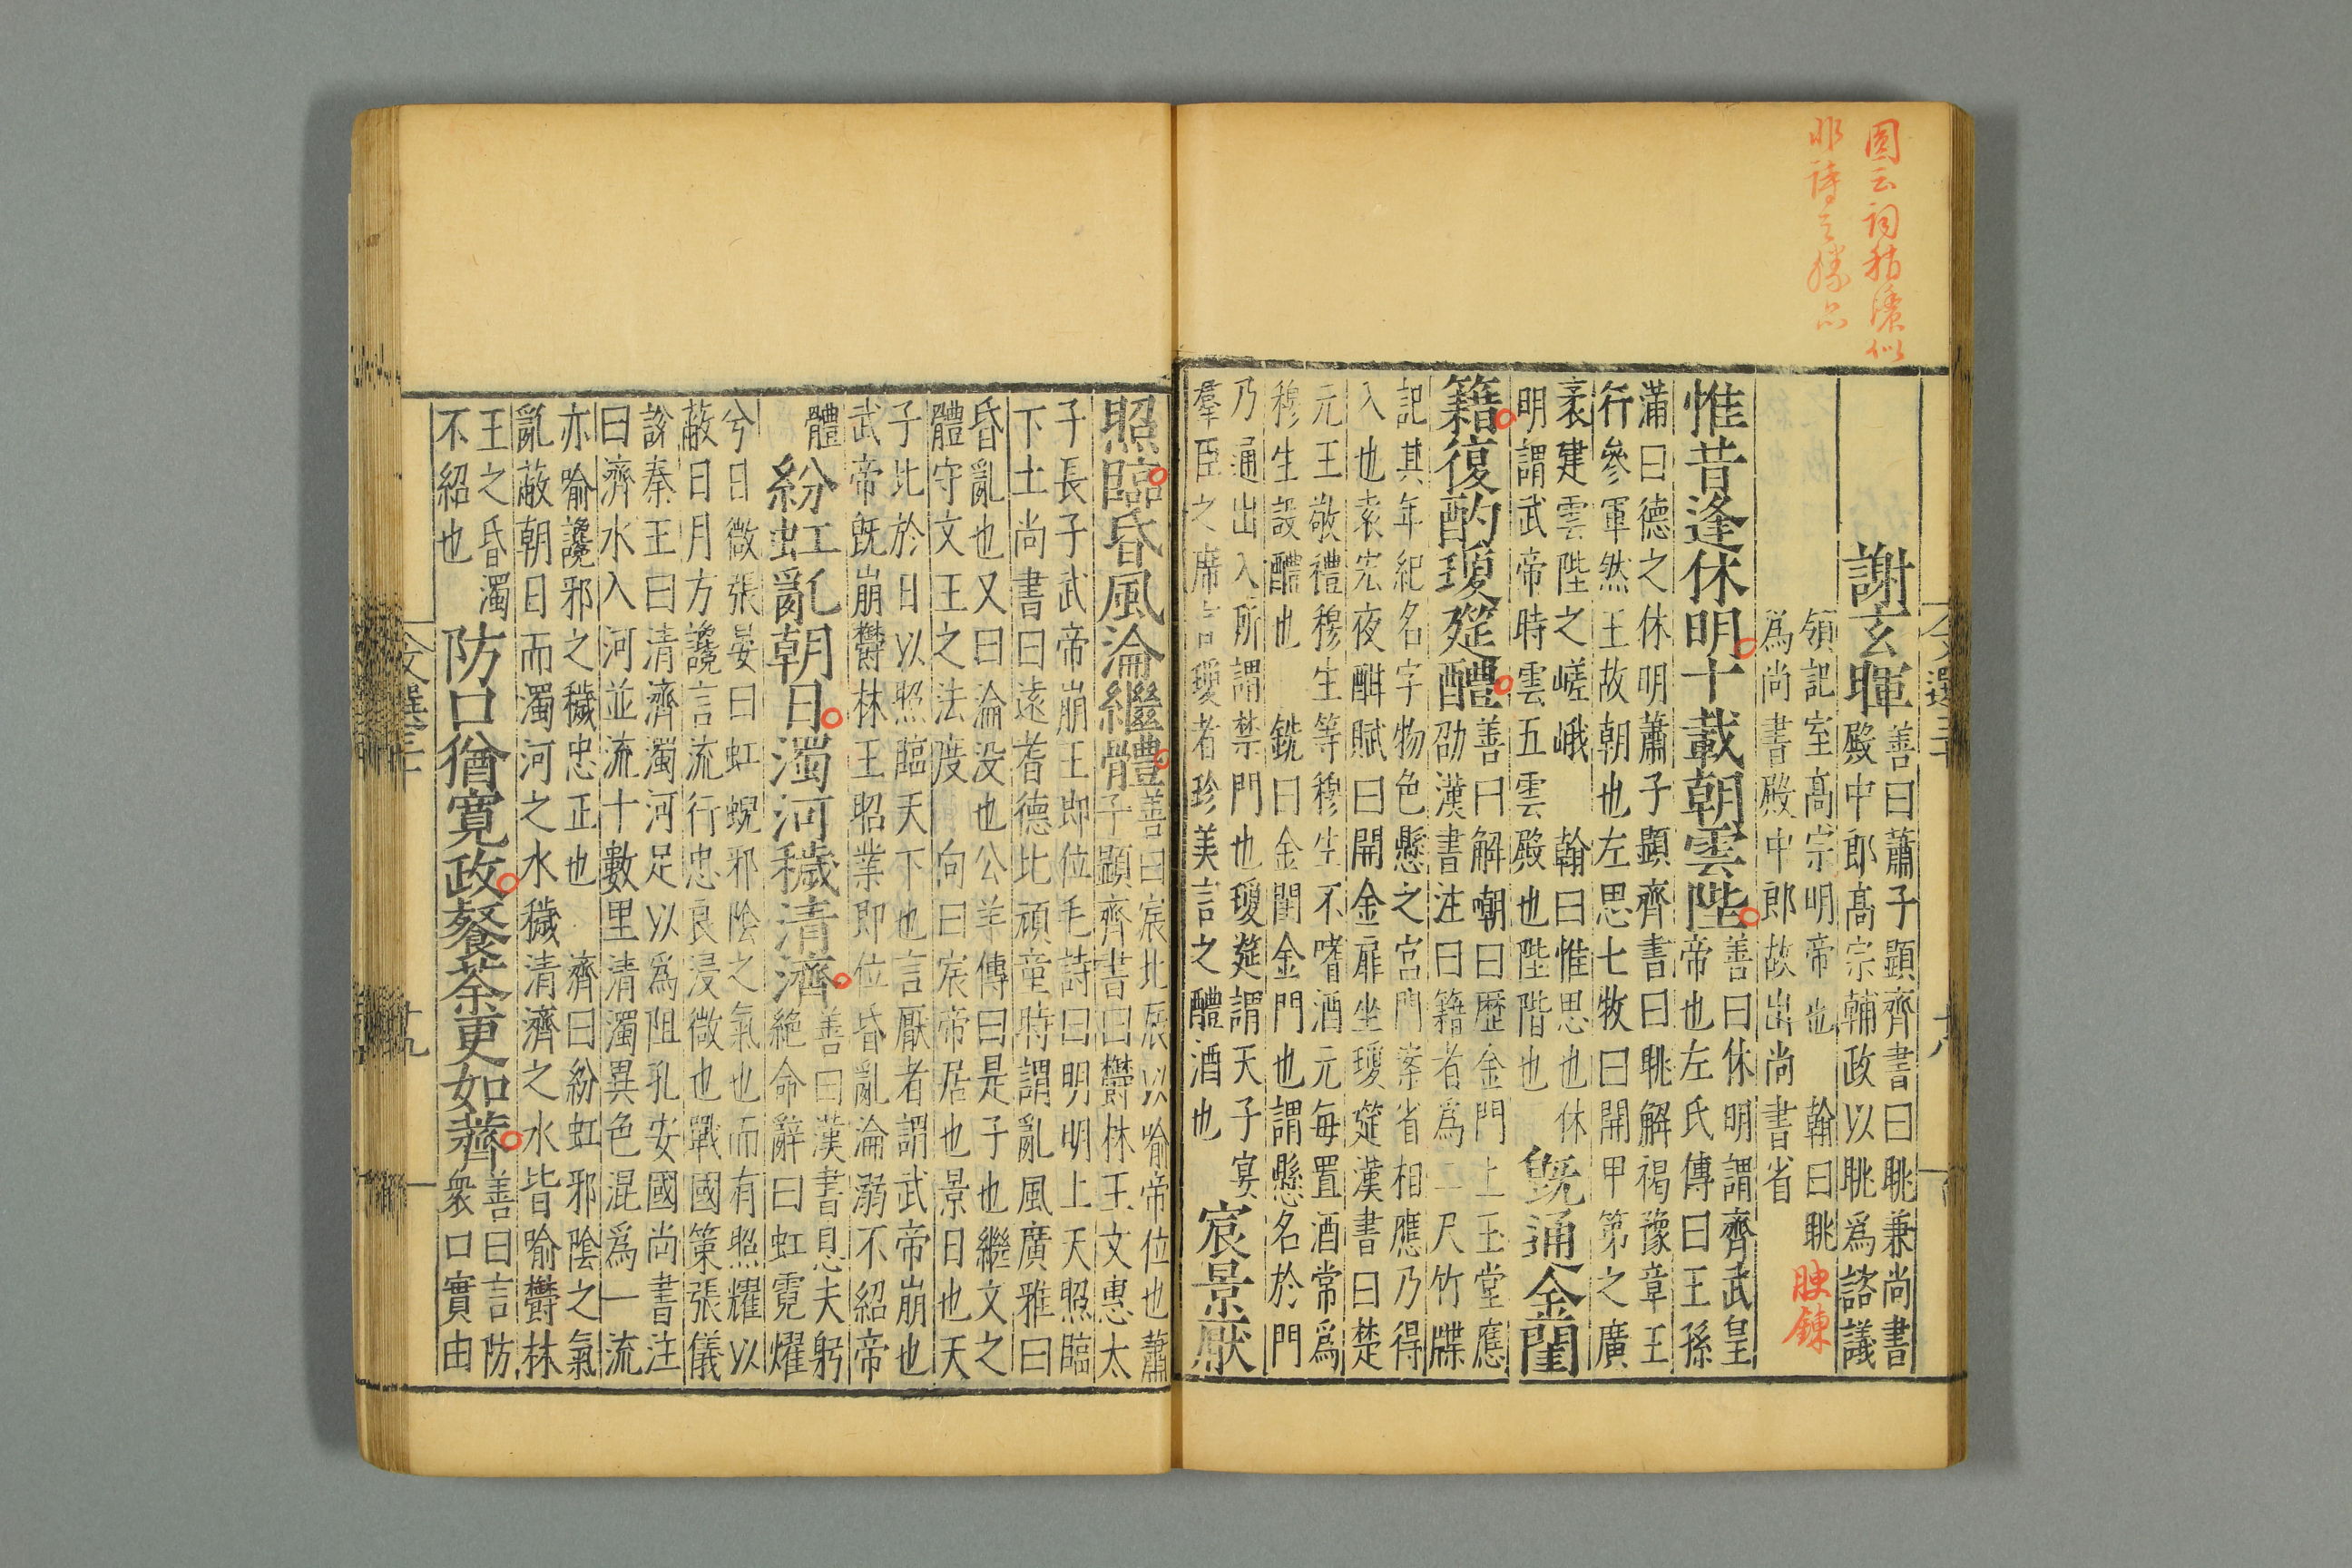 圓云詞稍濃似
非詩之勝品
謝玄暉
善曰蕭子顯齊書曰眺兼尚書
殿中郎高宗輔政以眺爲諮議
領記室高宗明帝也 翰曰眺
爲尚書殿中郎故出尚書省
惟昔逢休明十載朝雲陛
善曰休明謂齊武皇
帝也左氏傳曰王孫
滿曰德之休明蕭子顯齊書曰眺解褐豫章王
行參軍然王故朝也左思七牧曰開甲第之廣
袤建雲陛之嵯峨 翰曰惟思也休
明謂武帝時雲五雲殿也陛階也
既通金閨
籍復酌瓊筵醴
善曰解嘲曰歷金門上玉堂應
劭漢書注曰籍者爲二尺竹牒
記其年紀名字物色懸之宮門案省相應乃得
入也袁宏夜酣賦曰開金扉坐瓊筵漢書曰楚
元王敬禮穆生等穆生不嗜酒元每置酒常爲
穆生設醴也 銑曰金閨金門也謂懸名於門
乃通出入所謂禁門也瓊筵謂天子宴
羣臣之席言瓊者珍美言之醴酒也
宸景厭
照臨昏風淪繼體
善曰宸北辰以喻帝位也蕭
子顯齊書曰鬱林王文惠太
子長子武帝崩王即位毛詩曰明明上天照臨
下土尚書曰遠耆德比頑童時謂亂風廣雅曰
昏亂也又曰淪没也公羊傳曰是子也繼文之
體守文王之法度 向曰宸帝居也景日也天
子比於日以照臨天下也言厭者謂武帝崩也
武帝既崩鬱林王昭業即位昏亂淪溺不紹帝
體
紛虹亂朝日濁河穢清濟
善曰漢書息夫躬
絶命辭曰虹霓燿
兮日微張晏曰虹蜺邪陰之氣也而有照耀以
蔽日月方讒言流行忠良浸微也戰國策張儀
說秦王曰清濟濁河足以爲阻孔安國尚書注
曰濟水入河並流十數里清濁異色混爲一流
亦喻讒邪之穢忠正也 濟曰紛虹邪陰之氣
亂蔽朝日而濁河之水穢清濟之水皆喻鬱林
王之昏濁
不紹也
防口猶寬政餐荼更如薺
善曰言防
衆口實由
文選三十
十九